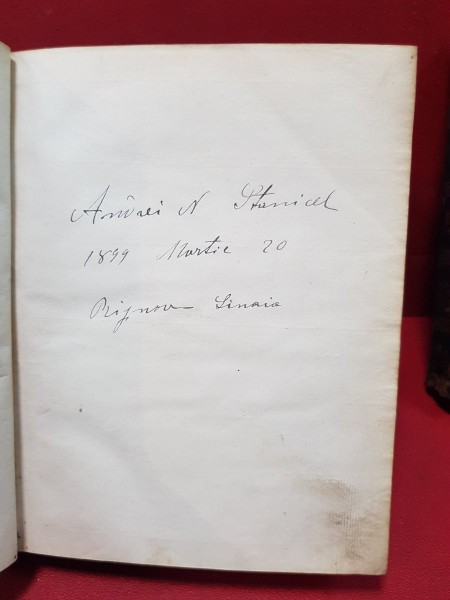 Andrei N Stanicel
1899 Martie 20
Rijnov Sinaia